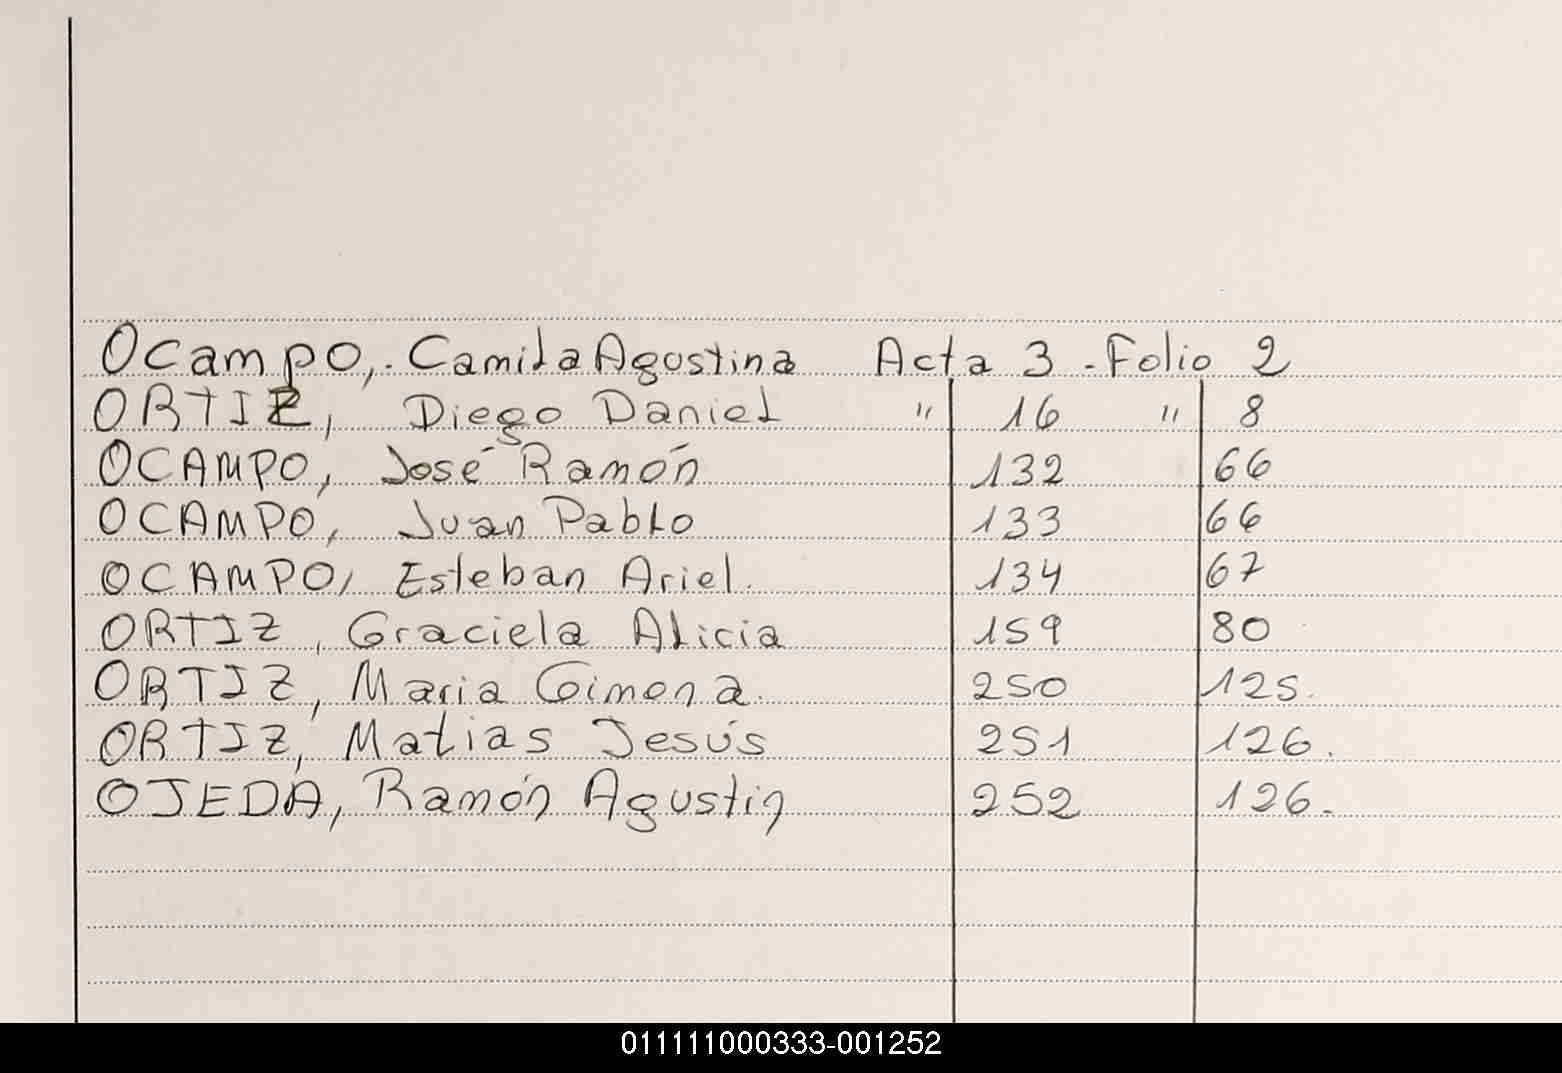 Ocampo, . Camila Agostina Acta 3 - Folio 2
ORTIZ, Diego Daniel " 16 " 8
OCAMPO, José Ramón 132 66
OCAMPO, Juan Pablo 133 66
OCAMPO, Esteban Ariel. 134 67
ORTIZ, Graciela Alicia 159 80
ORTIZ, Maria Gimena. 250 125.
ORTIZ, Matias Jesús 251 126.
OJEDA, Ramón Agustin 252 126.
011111000333-001252